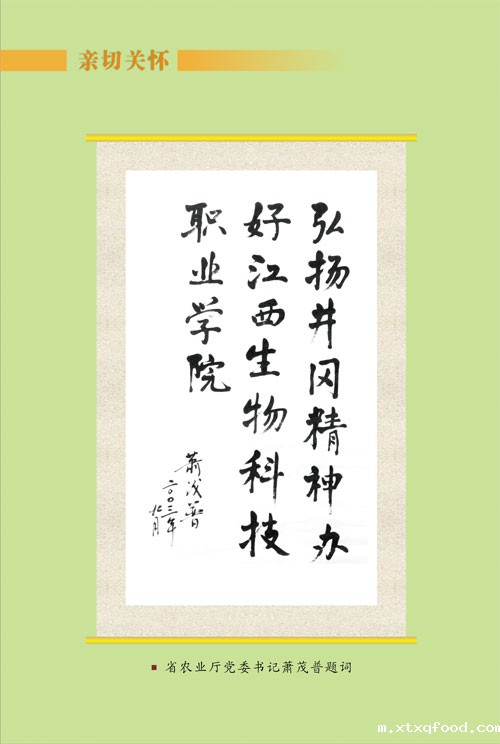 亲切关怀
弘扬井冈精神办
好江西生物科技
职业学院
萧茂普
二〇〇三年
九月
省农业厅党委书记萧茂普题词
m.xtxqfood.com